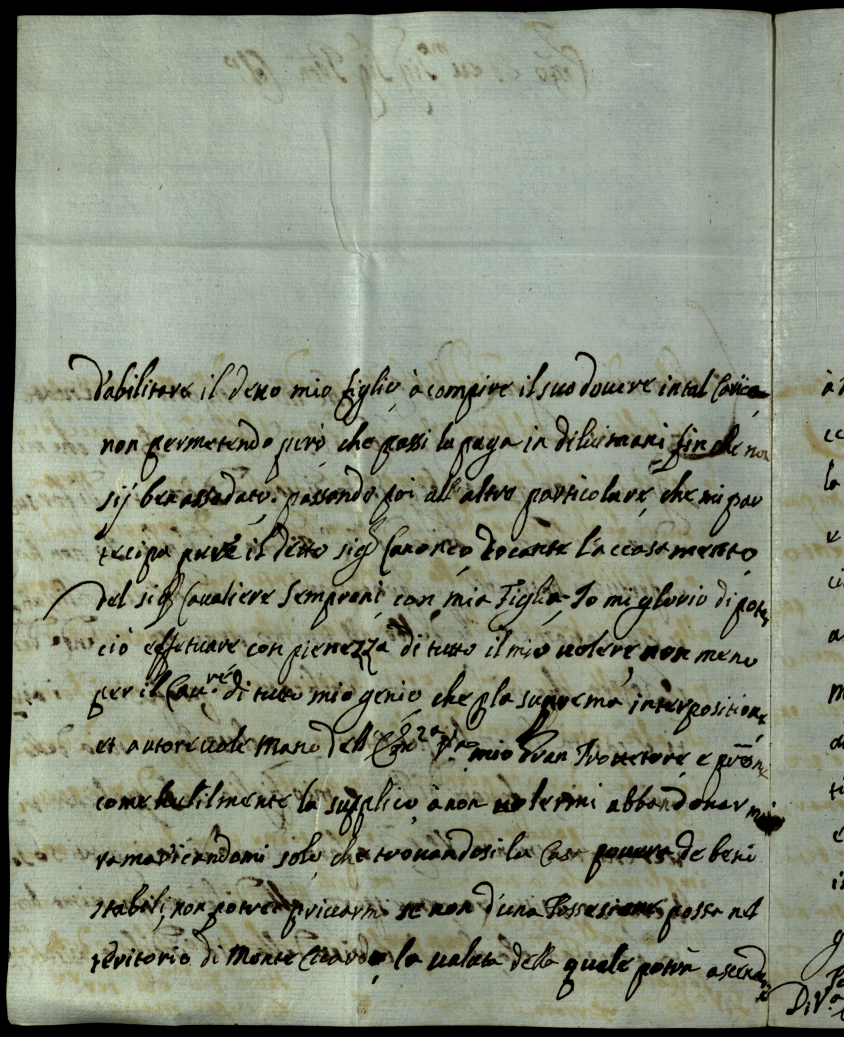 d'abilitare il detto mio figlio, à compire il suo dovere in tal Carica
non permetendo però che passi la paga in di lui mani fin che non
sij ben assodato; passando poi all'altro particolare, che mi par
tecipa pure il detto sig.r Canonico, tocante l'accasamento
del sig.r Cavaliere Semproni con mia Figlia, Io mi glorio di poter
ciò effetuare con pienezza di tutto il mio volere, non meno
per il Cav.re di tutto mio genio, che p la suprema interpositione
et autorevole Mano dell' mio Gran Protettore, e
come humilmente la supplico, à non volermi abbandonar mai
ramaricandomi solo che trovandosi la Casa povera de beni
stabili, non potrei privarmi se non d'una Possessione posta nel
teritorio di Monte la valuta della quale potrà